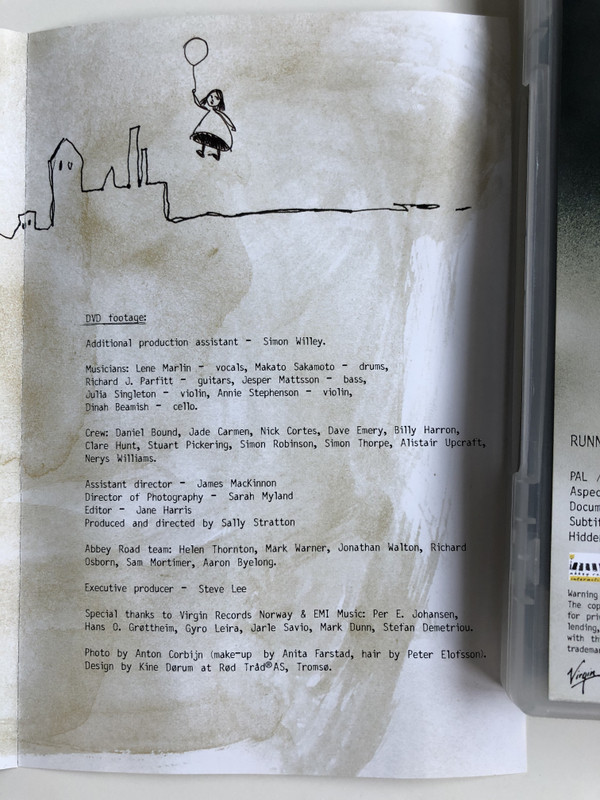 DVD footage:
Additional production assistant – Simon Willey.
Musicians: Lene Marlin – vocals, Makato Sakamoto – drums,
Richard J. Parfitt – guitars, Jesper Mattsson – bass,
Julia Singleton – violin, Annie Stephenson – violin,
Dinah Beamish – cello.
Crew: Daniel Bound, Jade Carmen, Nick Cortes, Dave Emery, Billy Harron,
Clare Hunt, Stuart Pickering, Simon Robinson, Simon Thorpe, Alistair Upcraft,
Nerys Williams.
Assistant director – James MacKinnon
Director of Photography – Sarah Myland
Editor – Jane Harris
Produced and directed by Sally Stratton
Abbey Road team: Helen Thornton, Mark Warner, Jonathan Walton, Richard
Osborn, Sam Mortimer, Aaron Byelong.
Executive producer – Steve Lee
Special thanks to Virgin Records Norway & EMI Music: Per E. Johansen,
Hans O. Grøttheim, Gyro Leira, Jarle Savio, Mark Dunn, Stefan Demetriou.
Photo by Anton Corbijn (make-up by Anita Farstad, hair by Peter Elofsson).
Design by Kine Dørum at Rød Tråd®AS, Tromsø.
RUNN
PAL /
Aspec
Docum
Subtit
Hidden
Warning
The cop
for pri
lending,
with th
trademar
Virgin